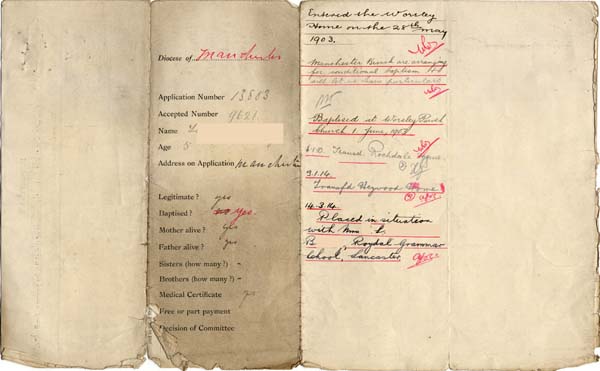 Diocese of Manchester
Application Number 13803
Accepted Number 9621
Name L
Age 5
Address on Application Manchester
Legitimate? yes
Baptised? no yes.
Mother alive? yes
Father alive? yes
Sisters (how many?) -
Brothers (how many?) -
Medical Certificate yes
Free or part payment
Decision of Committee
Entered the Worsley
Home on the 28th May
1903.
Manchester Branch are arranging
for conditional baptism &
will let us have particulars
Baptised at Worsley Parish
Church 1 June, 1903
Transd. Rochdale Home
9.1.14.
Transfd Heywood Home
14.3.14
Placed in situation
with Mrs L.
B. Grammar
School, Lancaster